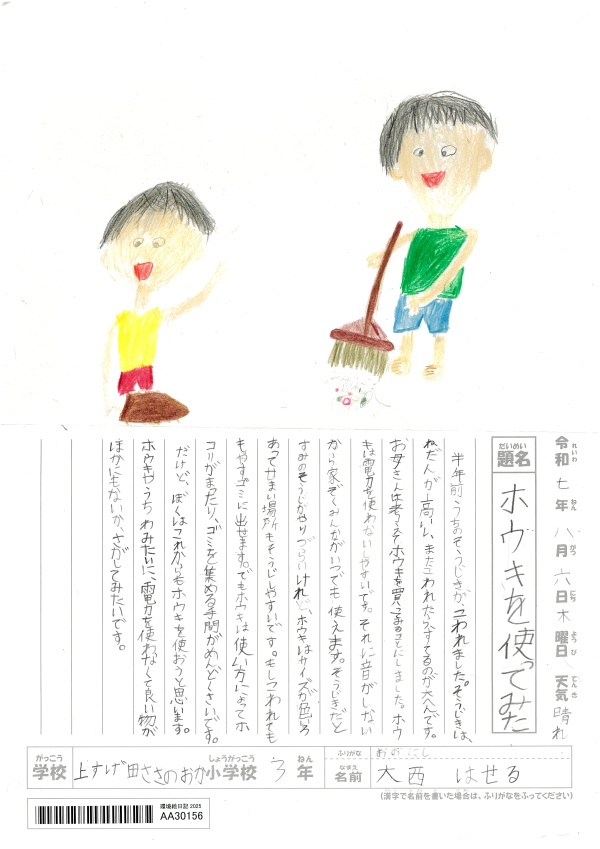 令和七年八月六日木曜日 天気 晴れ
れいわ ねん がつ にち ようび てんき
だいめい
題名
ホウキを使ってみた
半年前、うちのそうじきが、こわれました。そうじきは、
ねだんが高いし、またこわれたらすてるのが大へんです。
お母さんは考えてホウキを買うことにしました。ホウ
キは電力を使わないしやすいです。それに音がしない
から家ぞくみんながいつでも使えます。そうじきだと
すみのそうじがやりづらいけれど、ホウキはサイズが色いろ
あってせまい場所もそうじしやすいです。もしこわれても
もやすゴミに出せます。でもホウキは使い方によってホ
コリがまったり、ゴミを集める手間がめんどくさいです。
だけど、ぼくはこれからもホウキを使おうと思います。
ホウキやうちわみたいに、電力を使わなくて良い物が
ほかにもないか、さがしてみたいです。
がっこう
学校
上すげ田ささのおか小学校 3年
しょうがっこう ねん
ふりがな おおにし
なまえ
名前
大西 はせる
(漢字で名前を書いた場合は、ふりがなをふってください)
環境絵日記 2025
AA30156